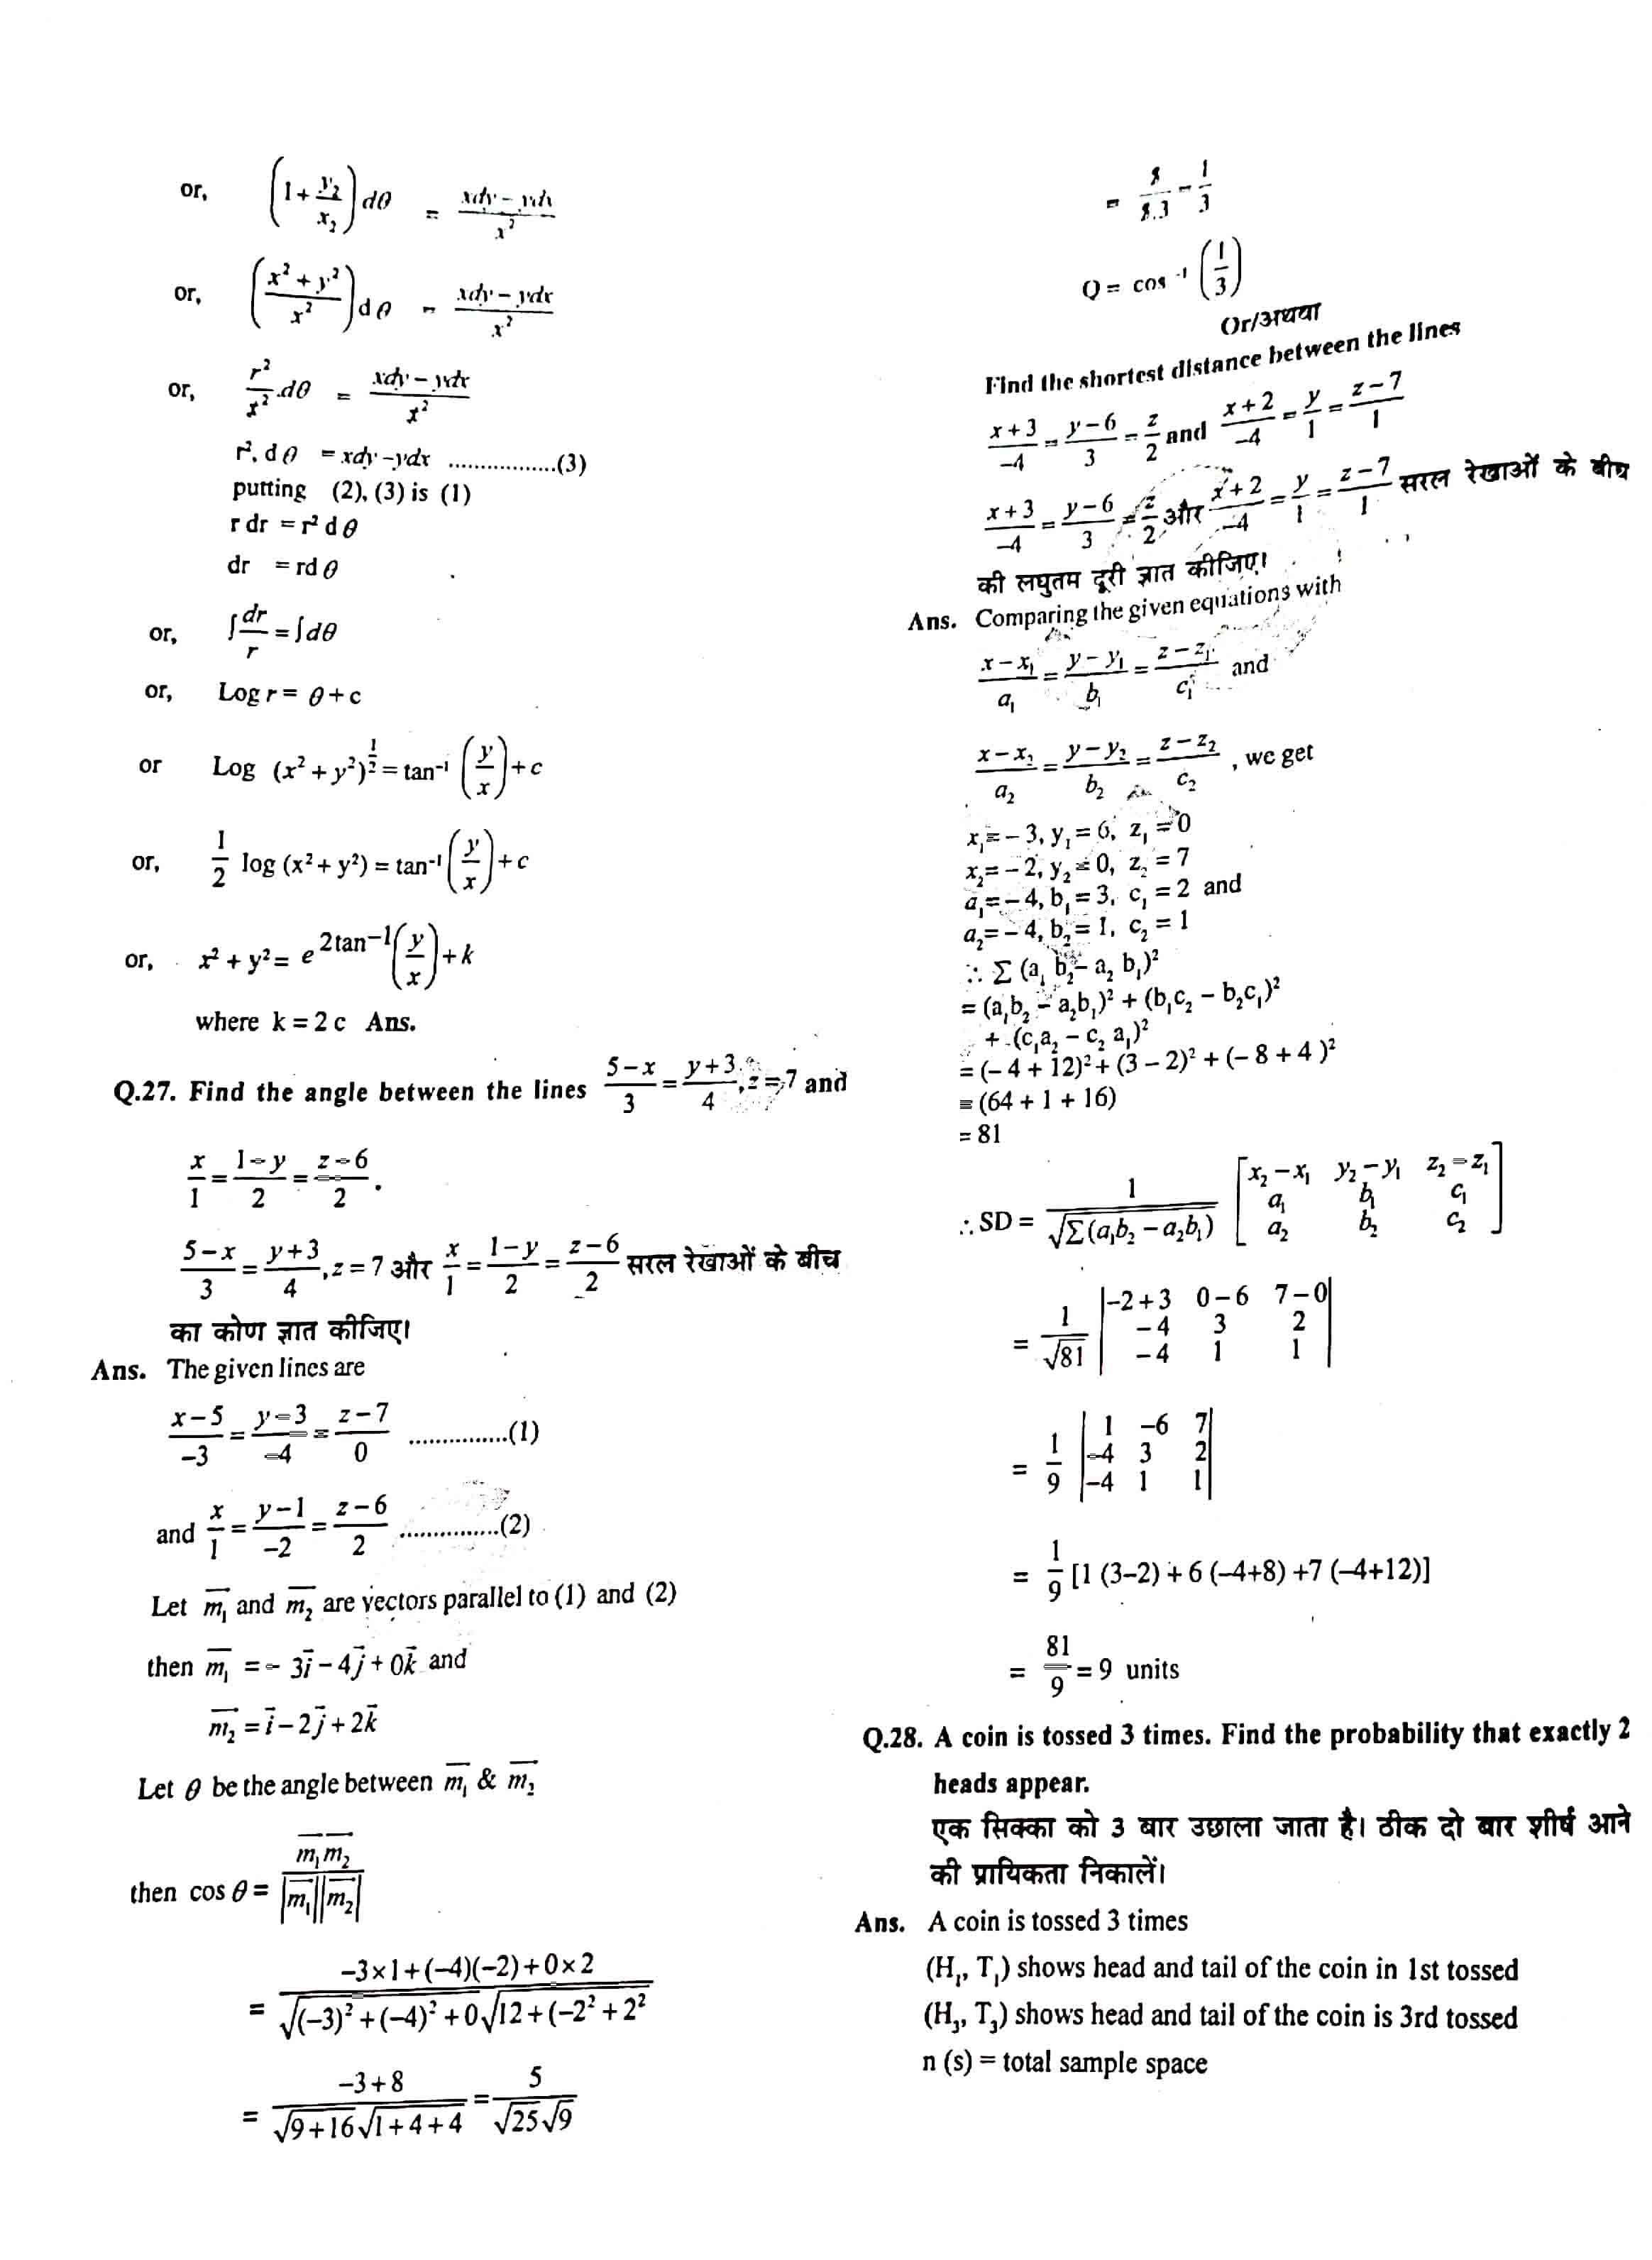 or, (1 + y₂/x₂) dθ = (xdy – ydx)/x²
or, ((x² + y²)/x²) d θ = (xdy – ydx)/x²
or, r²/x² .dθ = (xdy – ydx)/x²
r². d θ = xdy –ydx .................(3)
putting (2), (3) is (1)
r dr = r² d θ
dr = rd θ
or, ∫ dr/r = ∫ dθ
or, Log r = θ + c
or Log (x² + y²)^(1/2) = tan⁻¹ (y/x) + c
or, 1/2 log (x² + y²) = tan⁻¹ (y/x) + c
or, x² + y² = e^(2tan⁻¹(y/x)) + k
where k = 2 c Ans.
Q.27. Find the angle between the lines (5 – x)/3 = (y + 3)/4, z = 7 and
x/1 = (1 – y)/2 = (z – 6)/2 .
(5 – x)/3 = (y + 3)/4, z = 7 और x/1 = (1 – y)/2 = (z – 6)/2 सरल रेखाओं के बीच
का कोण ज्ञात कीजिए।
Ans. The given lines are
(x – 5)/–3 = (y – 3)/–4 = (z – 7)/0 ...............(1)
and x/1 = (y – 1)/–2 = (z – 6)/2 ...............(2)
Let m₁ and m₂ are vectors parallel to (1) and (2)
then m₁ = – 3i – 4j + 0k and
m₂ = i – 2j + 2k
Let θ be the angle between m₁ & m₂
then cos θ = m₁m₂ / |m₁||m₂|
= (–3 × 1 + (–4)(–2) + 0 × 2) / √(–3)² + (–4)² + 0 √12 + (–2² + 2²
= (–3 + 8) / √9 + 16 √1 + 4 + 4 = 5 / √25 √9
= 5/5.3 – 1/3
Q = cos ⁻¹ (1/3)
Or/अथवा
Find the shortest distance between the lines
(x + 3)/–4 = (y – 6)/3 = z/2 and (x + 2)/–4 = y/1 = (z – 7)/1
(x + 3)/–4 = (y – 6)/3 = z/2 और (x + 2)/–4 = y/1 = (z – 7)/1 सरल रेखाओं के बीच
की लघुतम दूरी ज्ञात कीजिए।
Ans. Comparing the given equations with
(x – x₁)/a₁ = (y – y₁)/b₁ = (z – z₁)/c₁ and
(x – x₂)/a₂ = (y – y₂)/b₂ = (z – z₂)/c₂ , we get
x₁ = – 3, y₁ = 6, z₁ = 0
x₂ = – 2, y₂ = 0, z₂ = 7
a₁ = – 4, b₁ = 3, c₁ = 2 and
a₂ = – 4, b₂ = 1, c₂ = 1
∴ Σ (a₁ b₂ – a₂ b₁)²
= (a₁b₂ – a₂b₁)² + (b₁c₂ – b₂c₁)²
+ (c₁a₂ – c₂ a₁)²
= (– 4 + 12)² + (3 – 2)² + (– 8 + 4 )²
= (64 + 1 + 16)
= 81
∴ SD = 1/√Σ(a₁b₂ – a₂b₁) [x₂ – x₁ y₂ – y₁ z₂ – z₁
a₁ b₁ c₁
a₂ b₂ c₂]
= 1/√81 |–2 + 3 0 – 6 7 – 0
– 4 3 2
– 4 1 1|
= 1/9 |1 –6 7
–4 3 2
–4 1 1|
= 1/9 [1 (3–2) + 6 (–4+8) +7 (–4+12)]
= 81/9 = 9 units
Q.28. A coin is tossed 3 times. Find the probability that exactly 2
heads appear.
एक सिक्का को 3 बार उछाला जाता है। ठीक दो बार शीर्ष आने
की प्रायिकता निकालें।
Ans. A coin is tossed 3 times
(H₁, T₁) shows head and tail of the coin in 1st tossed
(H₃, T₃) shows head and tail of the coin is 3rd tossed
n (s) = total sample space